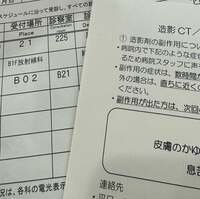 スケジュールに沿って受診し、すべての
受付場所 診察室
Place
21 225
B1F放射線科
B02 B21
況は、各科の電光表示
造影CT/
① 造影剤の副作用につい
・病院内で下記のような症
るため病院スタッフに声
・副作用の症状は、数時間
外の場合は、直ちに近く
・副作用が出た方は、次回
皮膚のかゆ
息苦
連絡先
・平日